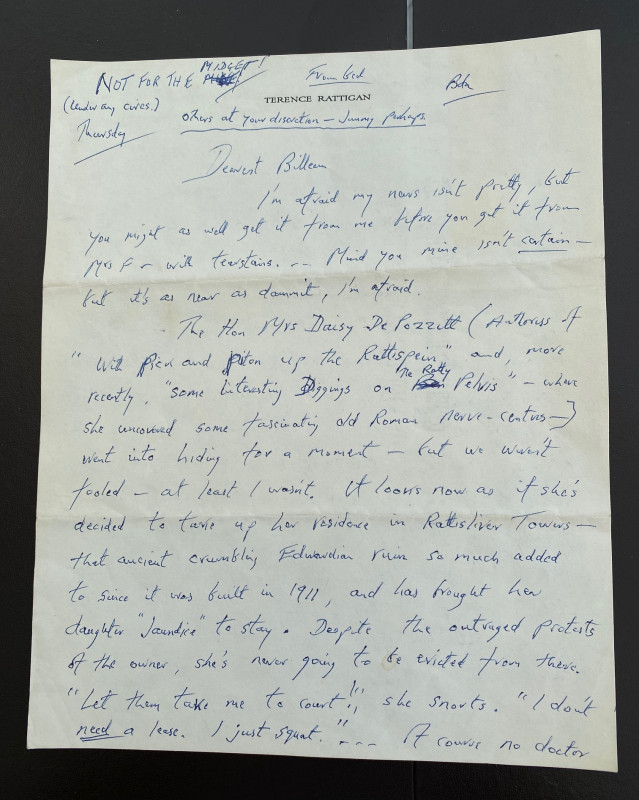 MIDGET!
NOT FOR THE From bed Bda
(Under any circs.) TERENCE RATTIGAN
Thursday others at your discretion - Jimmy perhaps.
Dearest Billem
I'm afraid my news isn't pretty, but
you might as well get it from me before you get it from
Mrs F - with tearstains. -- Mind you mine isn't certain -
but it's as near as dammit, I'm afraid.
The Hon Mrs Daisy De Pozzitt (Authoress of
"With Pick and Piton up the Rattispein" and, more
recently, "Some Interesting Diggings on The Ratty Pelvis" - where
she uncovered some fascinating old Roman nerve-centres-)
went into hiding for a moment - but we weren't
fooled - at least I wasn't. It looks now as if she's
decided to take up her residence in Rattisliver Towers -
that ancient crumbling Edwardian ruin so much added
to since it was built in 1911, and has brought her
daughter "Jaundice" to stay. Despite the outraged protests
of the owner, she's never going to be evicted from there.
"Let them take me to court!", she snorts. "I don't
need a lease. I just squat." --- Of course no doctor